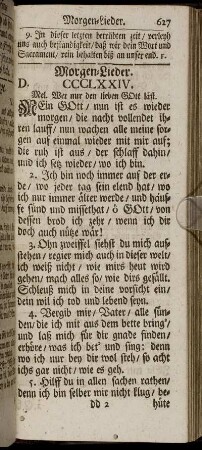 Morgen-Lieder. 627
9. In dieser letzten betrübten zeit/ verleyh
uns auch beständigkeit/ daß wir dein Wort und
Sacrament/ rein behalten biß an unser end. F.
Morgen-Lieder.
D. CCCLXXIV.
Mel. Wer nur den lieben GOtt läst.
MEin GOtt/ nun ist es wieder
morgen/ die nacht vollendet ih-
ren lauff/ nun wachen alle meine sor-
gen auf einmal wieder mit mir auf;
die ruh ist aus/ der schlaff dahin/
und ich seh wieder/ wo ich bin.
2. Ich bin noch immer auf der er-
de/ wo jeder tag sein elend hat/ wo
ich nur immer älter werde/ und häuf-
fe sünd und missethat/ ô GOtt/ von
dessen brod ich zehr/ wenn ich dir
doch auch nütze wär!
3. Ohn zweiffel siehst du mich auf-
stehen/ regier mich auch in dieser welt/
ich weiß nicht/ wie mirs heut wird
gehen/ mach alles so/ wie dirs gefällt.
Schleuß mich in deine vorsicht ein/
dein will ich tod und lebend seyn.
4. Vergib mir/ Vater/ alle sün-
den/ die ich mit aus dem bette bring'/
und laß mich für dir gnade finden/
erhöre/ was ich bet' und sing: denn
wo ich nur bey dir wol steh/ so acht
ichs gar nicht/ wie es geh.
5. Hilff du in allen sachen rathen/
denn ich bin selber mir nicht klug/ be-
dd 2 hüte